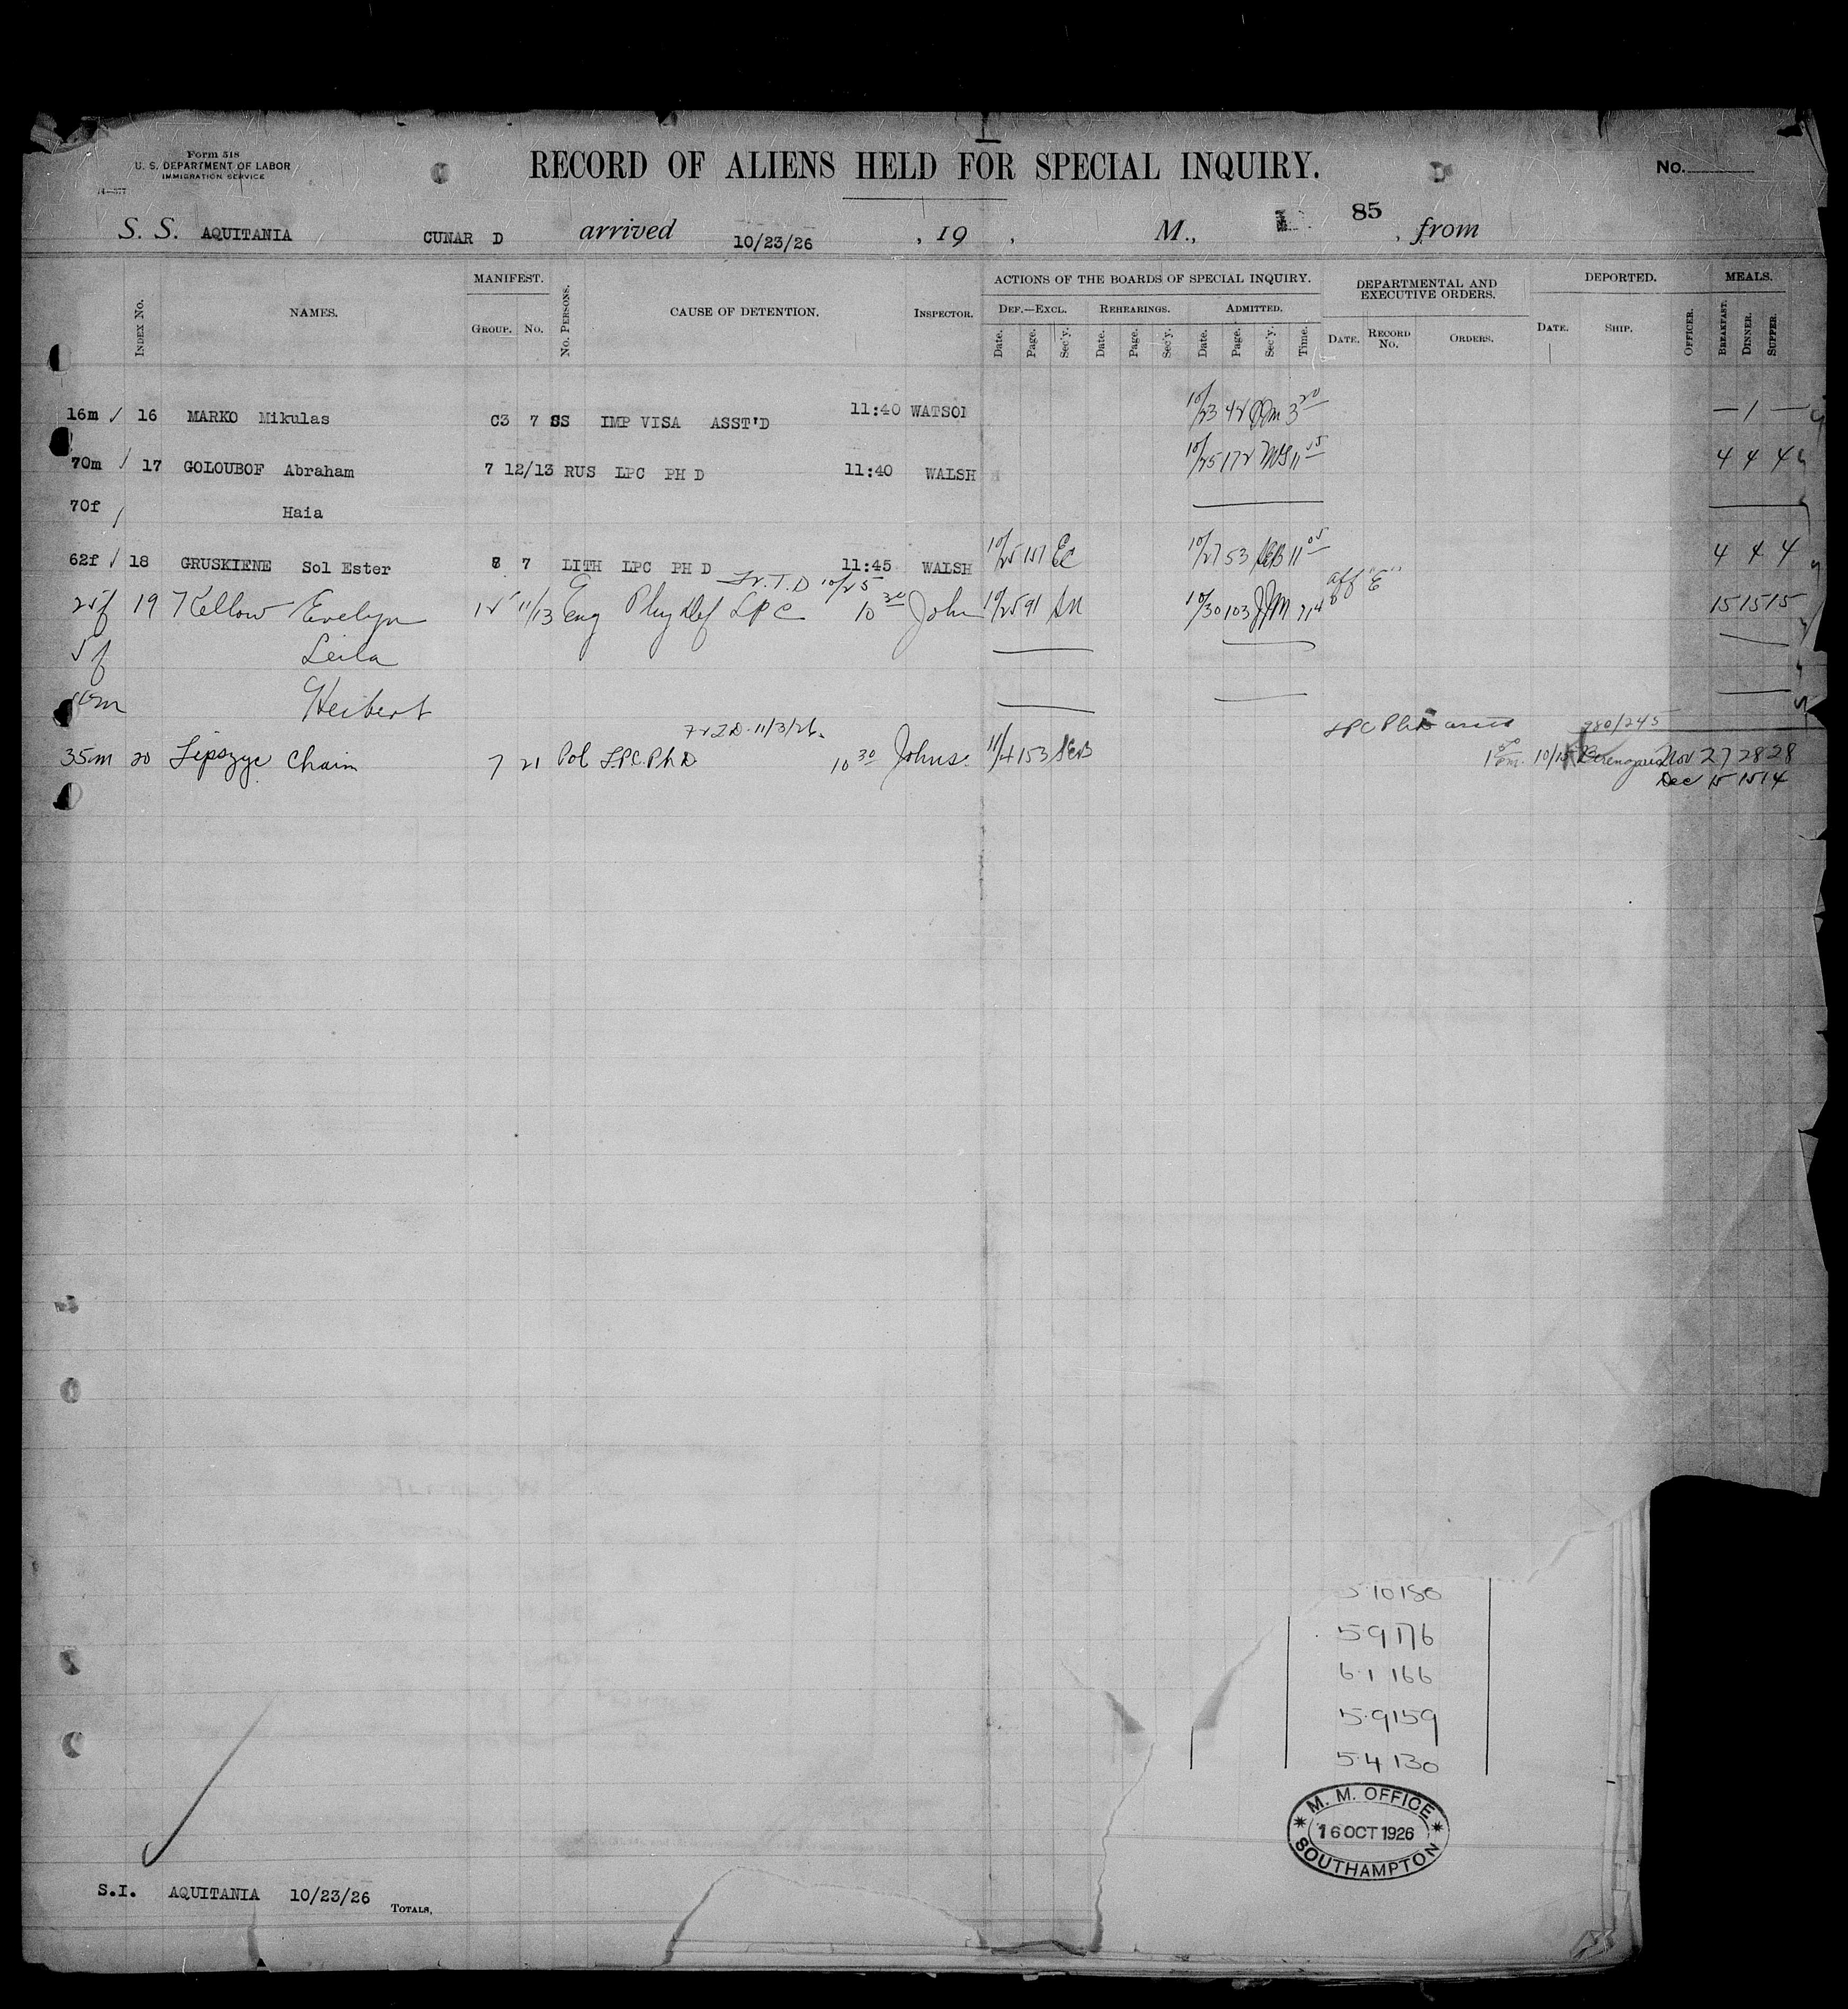 Form 518
U. S. DEPARTMENT OF LABOR
IMMIGRATION SERVICE
RECORD OF ALIENS HELD FOR SPECIAL INQUIRY.
No.
S. S. AQUITANIA CUNAR D arrived 10/23/26 , 19 , M., 85 , from
INDEX No. NAMES. MANIFEST. GROUP. No. No. PERSONS. CAUSE OF DETENTION. INSPECTOR.
ACTIONS OF THE BOARDS OF SPECIAL INQUIRY.
DEF.—EXCL. REHEARINGS. ADMITTED.
Date. Page. Sec'y. Date. Page. Sec'y. Date. Page. Sec'y. Time.
DEPARTMENTAL AND EXECUTIVE ORDERS.
DATE. RECORD No. ORDERS.
DEPORTED.
DATE. SHIP. OFFICER.
MEALS.
BREAKFAST. DINNER. SUPPER.
16m / 16 MARKO Mikulas C3 7 SS IMP VISA ASST'D 11:40 WATSON 10/23 42 3 20 — 1 —
70m / 17 GOLOUBOF Abraham 7 12/13 RUS LPC PH D 11:40 WALSH 10/25 172 11 15 4 4 4
70f / Haia
62f / 18 GRUSKIENE Sol Ester 8 7 LITH LPC PH D 11:45 WALSH 10/25 157 EC 10/27 53 SEB 11 05 4 4 4
Fr. T. D 10/25
25f 19 Kellow Evelyn 15 11/13 Eng Phy Def LPC 10 30 John 10/25 91 10/30 103 JJM aff "E" 15 15 15
5f Leila
Herbert
Fr T D. 11/3/26. LPC PhD 980/245
35m 20 Lipszyc Chaim 7 21 Pol LPC. Ph D 10 30 Johns. 11/4 153 SEB 10/15 Berengaria Nov 27 28 28
Dec 15 15 14
5·10 180
5·9 176
6·1 166
5·9 159
5·4 130
M. M. OFFICE
16 OCT 1926
SOUTHAMPTON
S.I. AQUITANIA 10/23/26
TOTALS,